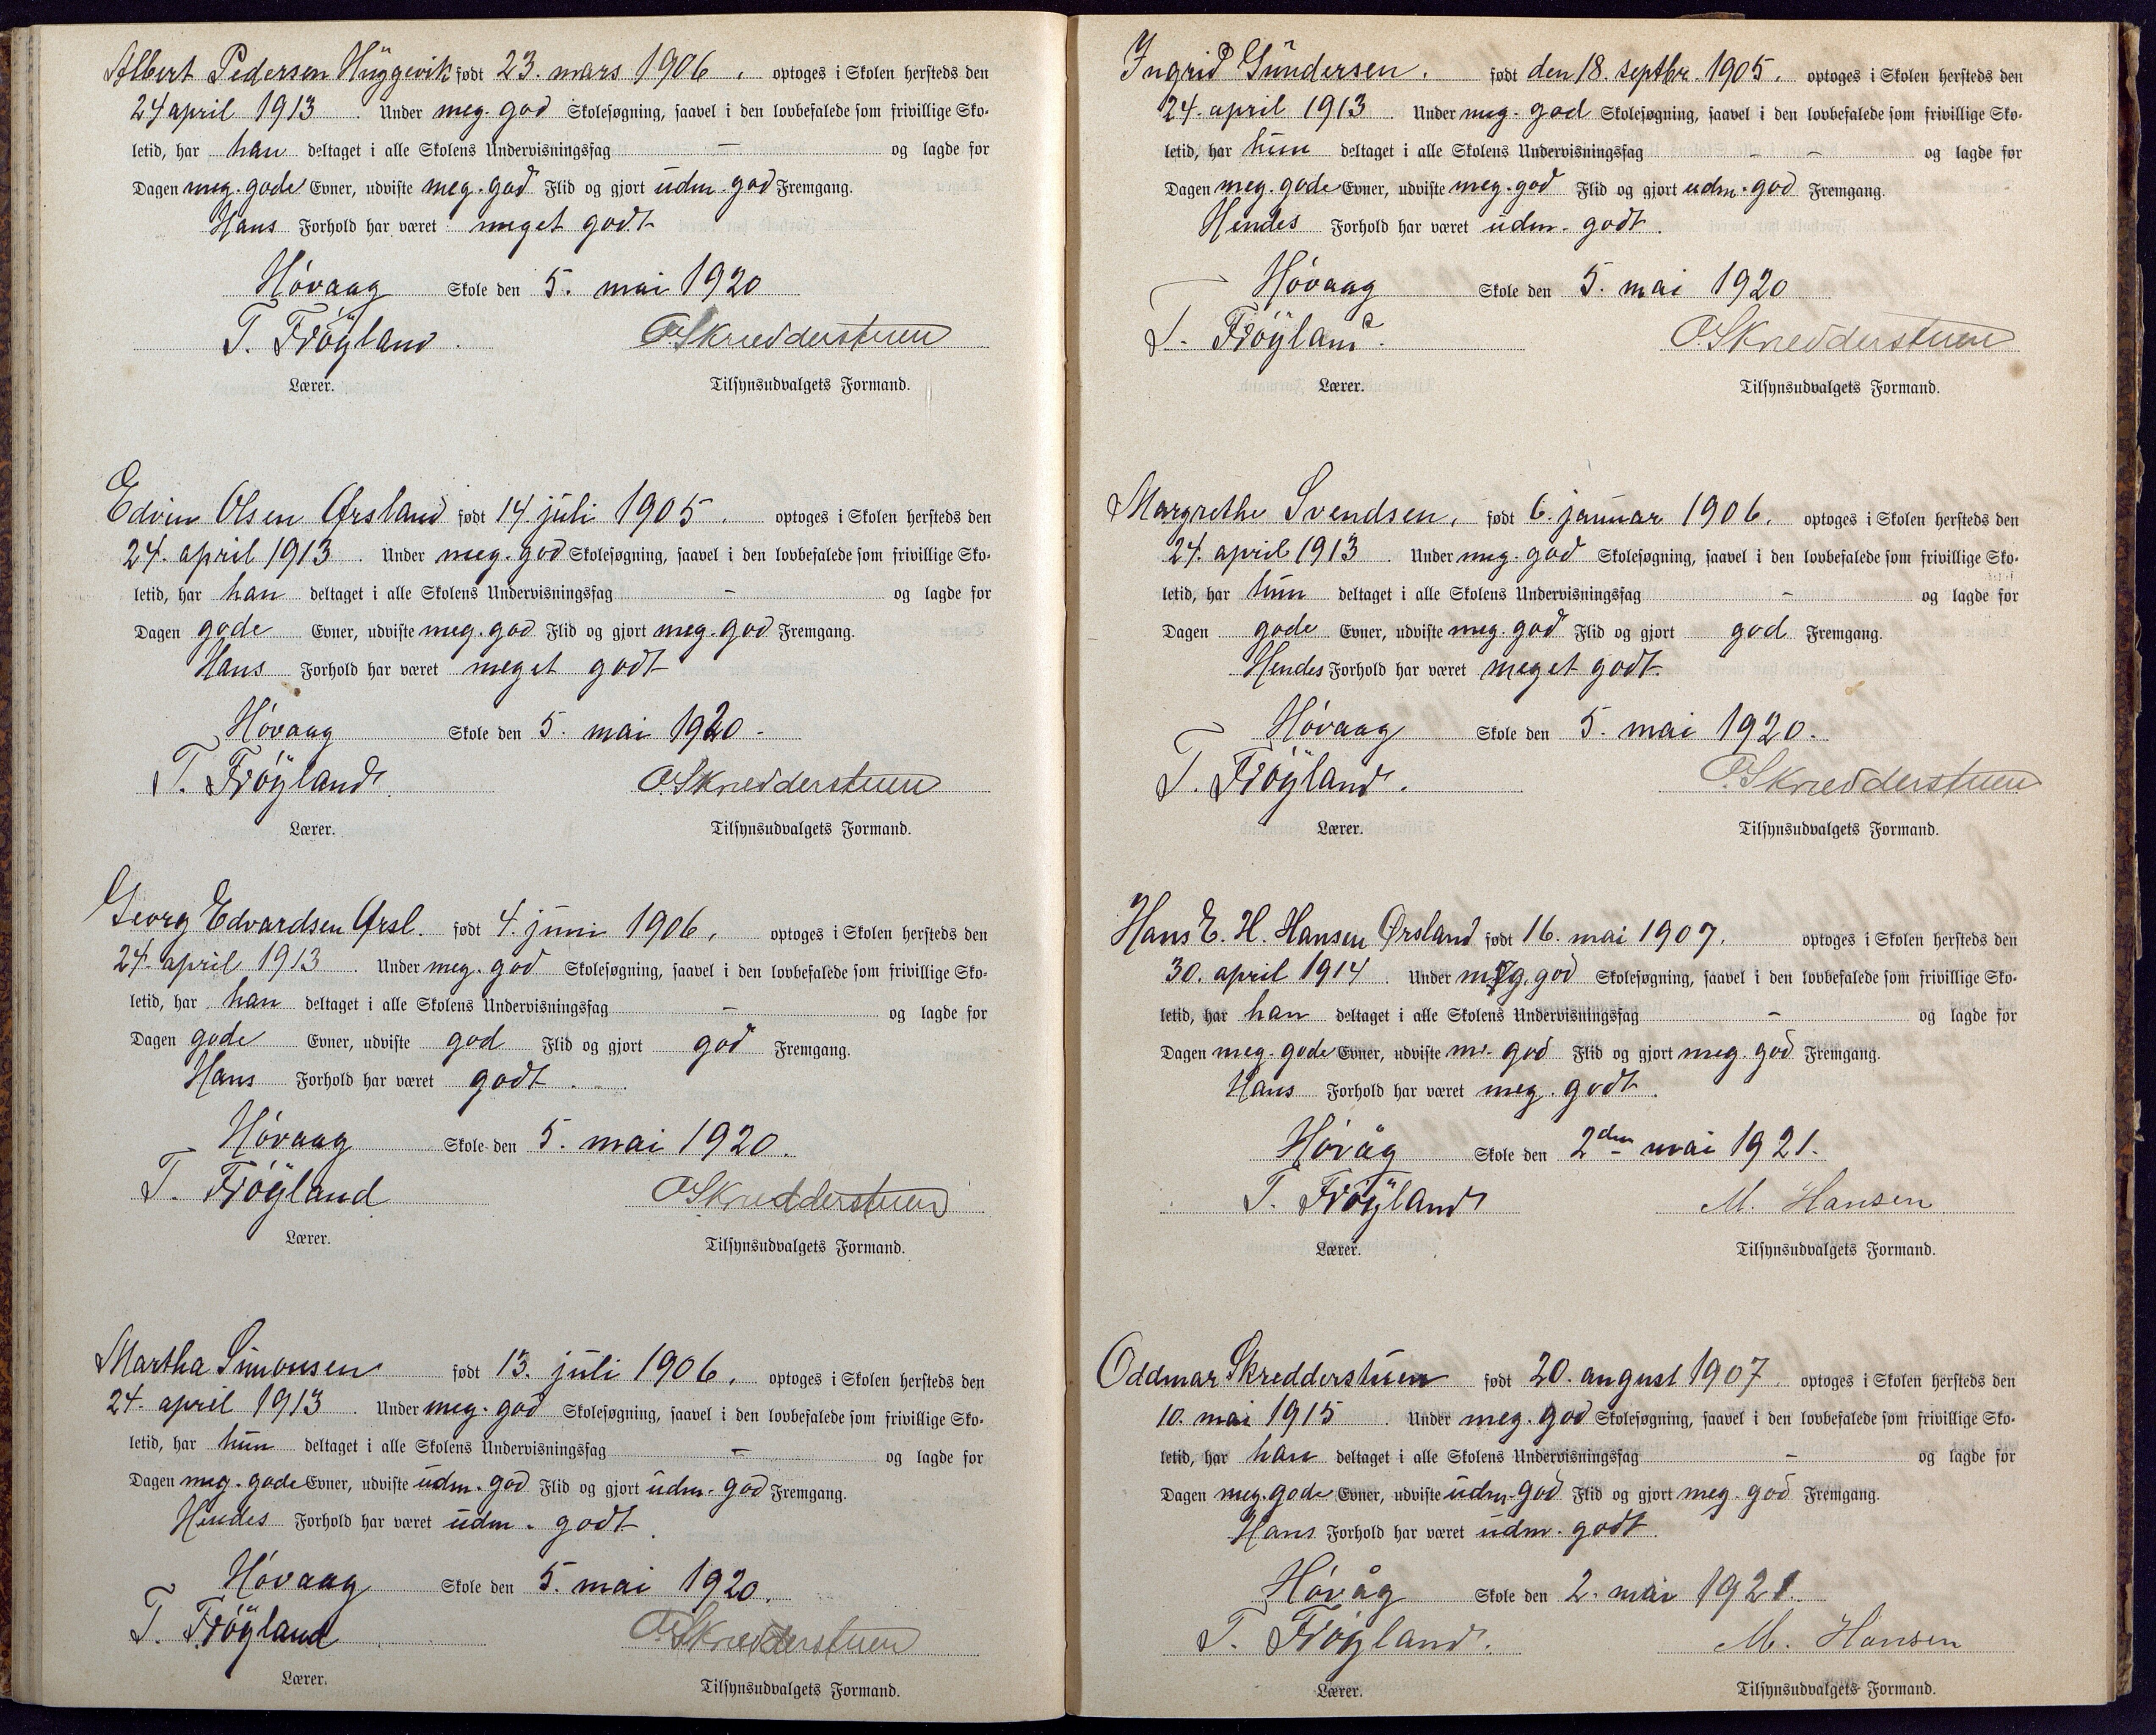 Albert Pedersen Hüggevik født 23. mars 1906. optoges i Skolen hersteds den
24 april 1913. Under meg. god Skolesøgning, saavel i den lovbefalede som frivillige Sko-
letid, har han deltaget i alle Skolens Undervisningsfag — og lagde for
Dagen meg. gode Evner, udviste meg. god Flid og gjort udm. god Fremgang.
Hans Forhold har været meget godt
Hóvaag Skole den 5. mai 1920
T. Fröyland. O. Skredderstuen
Lærer. Tilsynsudvalgets Formand.
Edvin Olsen Ørsland født 14. juli 1905. optoges i Skolen hersteds den
24. april 1913. Under meg. god Skolesøgning, saavel i den lovbefalede som frivillige Sko-
letid, har han deltaget i alle Skolens Undervisningsfag — og lagde for
Dagen gode Evner, udviste meg. god Flid og gjort meg. god Fremgang.
Hans Forhold har været meget godt
Hóvaag Skole den 5. mai 1920.
T. Fröyland. O. Skredderstuen
Lærer. Tilsynsudvalgets Formand.
Georg Edvardsen Ørsl. født 4. juni 1906, optoges i Skolen hersteds den
24. april 1913. Under meg. god Skolesøgning, saavel i den lovbefalede som frivillige Sko-
letid, har han deltaget i alle Skolens Undervisningsfag — og lagde for
Dagen gode Evner, udviste god Flid og gjort god Fremgang.
Hans Forhold har været godt.
Hóvaag Skole den 5. mai 1920.
T. Fröyland O. Skredderstuen
Lærer. Tilsynsudvalgets Formand.
Martha Simonsen født 13. juli 1906, optoges i Skolen hersteds den
24. april 1913. Under meg. god Skolesøgning, saavel i den lovbefalede som frivillige Sko-
letid, har hun deltaget i alle Skolens Undervisningsfag — og lagde for
Dagen meg. gode Evner, udviste udm. god Flid og gjort udm. god Fremgang.
Hendes Forhold har været udm. godt.
Hóvaag Skole den 5. mai 1920.
T. Fröyland O. Skredderstuen
Lærer. Tilsynsudvalgets Formand.
Ingrid Gundersen. født den 18. septbr. 1905. optoges i Skolen hersteds den
24. april 1913. Under meg. god Skolesøgning, saavel i den lovbefalede som frivillige Sko-
letid, har hun deltaget i alle Skolens Undervisningsfag — og lagde for
Dagen meg. gode Evner, udviste meg. god Flid og gjort udm. god Fremgang.
Hendes Forhold har været udm. godt.
Hóvaag Skole den 5. mai 1920
T. Fröyland. O. Skredderstuen
Lærer. Tilsynsudvalgets Formand.
Margrethe Svendsen, født 6. januar 1906. optoges i Skolen hersteds den
24. april 1913. Under meg. god Skolesøgning, saavel i den lovbefalede som frivillige Sko-
letid, har hun deltaget i alle Skolens Undervisningsfag — og lagde for
Dagen gode Evner, udviste meg. god Flid og gjort god Fremgang.
Hendes Forhold har været meget godt.
Hóvaag Skole den 5. mai 1920.
T. Fröyland. O. Skredderstuen
Lærer. Tilsynsudvalgets Formand.
Hans E. H. Hansen Ørsland født 16. mai 1907. optoges i Skolen hersteds den
30. april 1914. Under meg. god Skolesøgning, saavel i den lovbefalede som frivillige Sko-
letid, har han deltaget i alle Skolens Undervisningsfag — og lagde for
Dagen meg. gode Evner, udviste m. god Flid og gjort meg. god Fremgang.
Hans Forhold har været meg. godt.
Hóvåg Skole den 2den mai 1921.
T. Fröyland M. Hansen
Lærer. Tilsynsudvalgets Formand.
Oddmar Skredderstuen født 20. august 1907. optoges i Skolen hersteds den
10. mai 1915 Under meg. god Skolesøgning, saavel i den lovbefalede som frivillige Sko-
letid, har han deltaget i alle Skolens Undervisningsfag — og lagde for
Dagen meg. gode Evner, udviste udm. god Flid og gjort meg. god Fremgang.
Hans Forhold har været udm. godt.
Hóvåg Skole den 2. mai 1921.
T. Fröyland. M. Hansen
Lærer. Tilsynsudvalgets Formand.